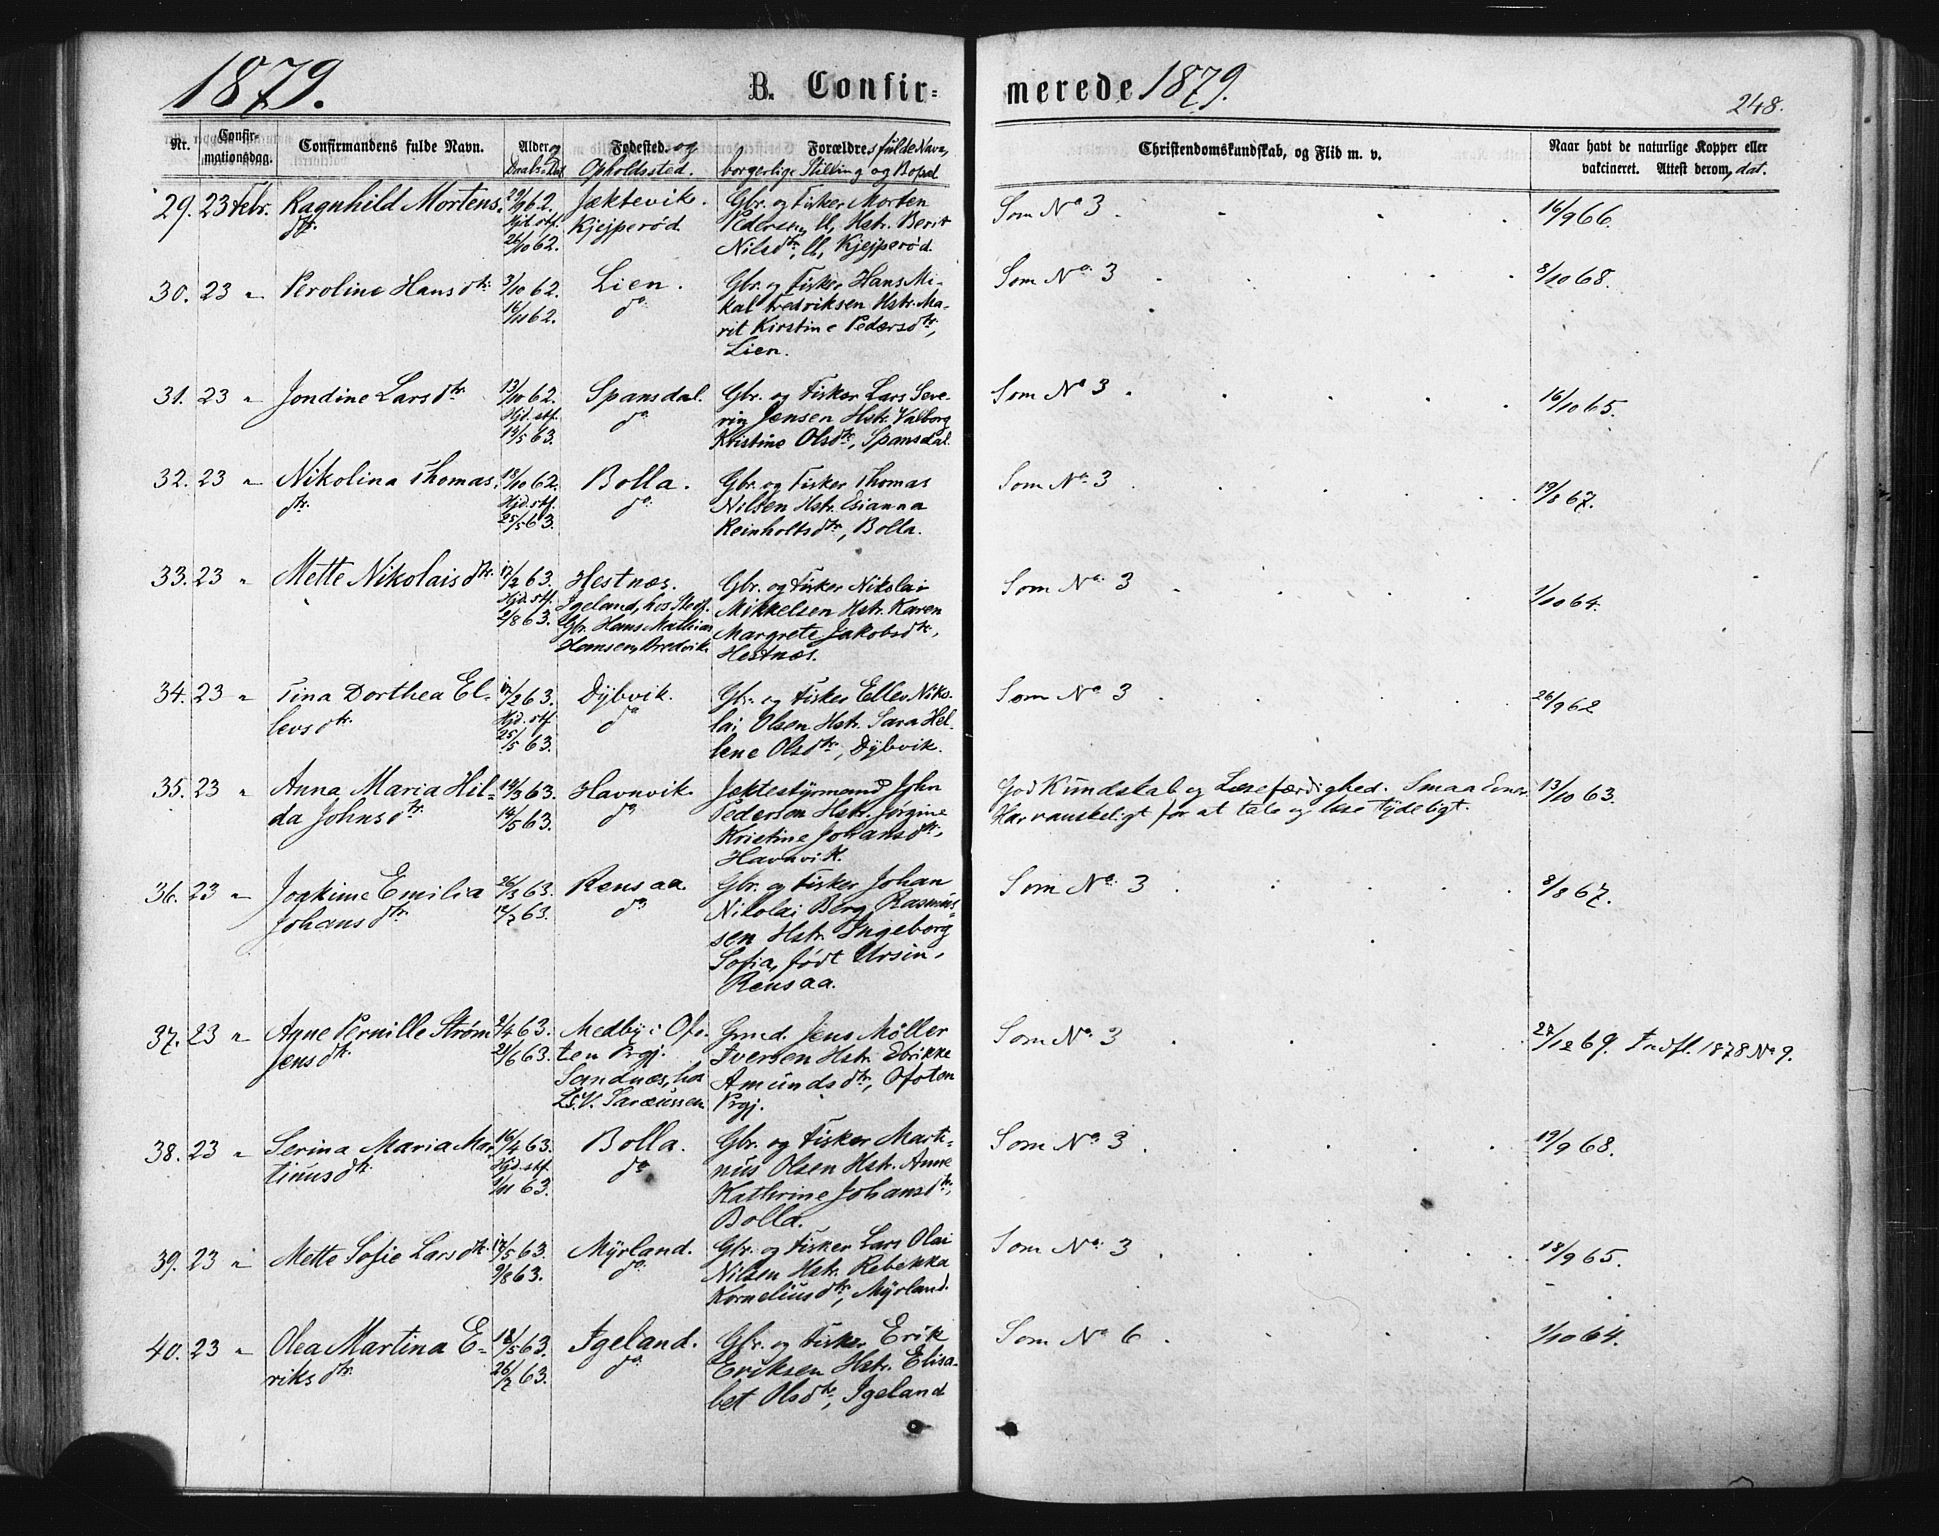 1879.
B. Confir-
merede 1879.
248.
Nr.
Confir-
mationsdag.
Confirmandens fulde Navn.
Alder og
Daabs Dat
Fødested. og
Opholdssted.
Forældres fulde Navn,
borgerlige Stilling og Bopæl
Christendomskundskab, og Flid m. v.
Naar havt de naturlige Kopper eller
vakcineret. Attest derom, dat.
29. 23 Febr. Ragnhild Mortens-
dtr.
29/9 62.
Hjd. stf.
26/10 62.
Jæktevik.
Kjejperød.
Gbr. og Fisker Morten
Pedersen, Hstr. Berit
Nilsdtr., Kjejperød.
Som No 3
16/9 66.
30. 23 " Peroline Hansdtr.
3/10 62.
16/11 62.
Lien.
do
Gbr. og Fisker Hans Mi-
kal Fredriksen Hstr. Ma-
rit Kirstine Pedersdtr.,
Lien.
Som No 3
8/10 68.
31. 23 " Jondine Larsdtr.
13/10 62.
Hjd. stf.
14/5 63.
Spansdal.
do
Gbr. og Fisker Lars Seve-
rin Jensen Hstr. Valborg
Kristine Olsdtr., Spansdal.
Som No 3
16/10 65.
32. 23 " Nikolina Thomas-
dtr.
18/10 62.
Hjd. stf.
25/5 63.
Bolla.
do
Gbr. og Fisker Thomas
Nilsen Hstr. Esianna
Reinholtsdtr., Bolla.
Som No 3
19/8 67.
33. 23 " Mette Nikolaisdtr.
12/2 63.
Hjd. stf.
2/8 63.
Hestnæs.
Igeland, hos Stedf.
Gbr. Hans Mathias
Hansen, Bredvik.
Gbr. og Fisker Nikolai
Mikkelsen Hstr. Karen
Margrete Jakobsdtr.,
Hestnæs.
Som No 3
1/10 64.
34. 23 " Tina Dorthea El-
levsdtr.
12/2 63.
Hjd. stf
25/5 63.
Dybvik.
do
Gbr. og Fisker Ellev Niko-
lai Olsen Hstr. Sara Hel-
lene Olsdtr., Dybvik.
Som No 3
26/9 62
35. 23 " Anna Maria Hil-
da Johnsdtr.
19/3 63.
14/5 63.
Havnvik.
do
Jæktestyrmand John
Pederson Hstr. Jørgine
Kristine Johansdtr.,
Havnvik.
God Kundskab og Læsefærdighed. Smaa Evner.
Har vanskeligt for at tale og læse tydeligt.
13/10 63.
36. 23 " Joakime Emilia
Johansdtr.
26/3 63.
12/7 63.
Rensaa.
do
Gbr. og Fisker Johan
Nikolai Berg Rasmus-
sen Hstr. Ingeborg
Sofia, født Ursin,
Rensaa.
Som No 3
8/8 67.
37. 23 " Agne Pernille Strøm
Jensdtr.
2/4 63.
21/6 63.
Medby i Ofo-
ten Prgj.
Sandnæs, hos
Gmd. Jens Møller
Iversen Hstr. Edrikke
Amundsdtr., Ofoten
Prgj.
Som No 3
27/12 69. Indfl. 1878 No 9.
38. 23 " Serina Maria Mar-
tinusdtr.
16/4 63.
Hjd. stf.
1/11 63.
Bolla.
do
Gbr. og Fisker Marti-
nus Olsen Hstr. Anne
Kathrine Johansdtr.,
Bolla.
Som No 3
19/9 68.
39. 23 " Mette Sofie Larsdtr.
12/5 63.
9/8 63.
Myrland.
do
Gbr. og Fisker Lars Olai
Nilsen Hstr. Rebekka
Korneliusdtr., Myrland.
Som No 3
18/9 65.
40. 23 " Olea Martina E-
riksdtr.
18/5 63.
26/7 63.
Igeland.
do
Gbr. og Fisker Erik
Eriksen Hstr. Elisa-
bet Olsdtr., Igeland
Som No 6
1/10 64.